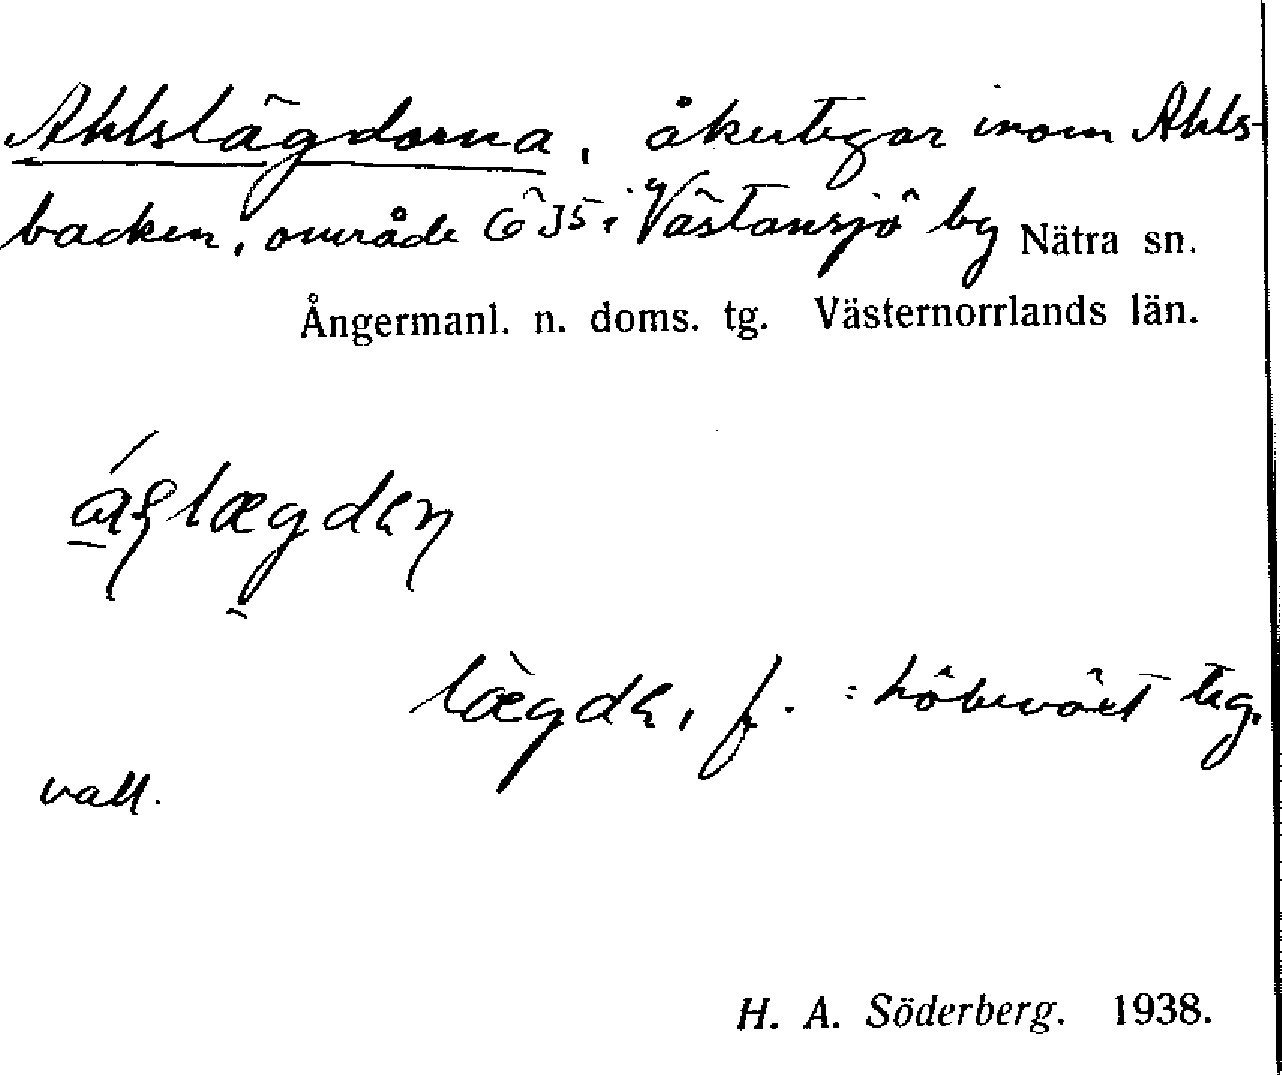 Ahlslägdorna, åkertegar inom Ahls-
backen, område Ö 35 i Västansjö by Nätra sn.
Ångermanl. n. doms. tg. Västernorrlands län.
lægde, f. = höbevöxt teg,
vall.
H. A. Söderberg. 1938.